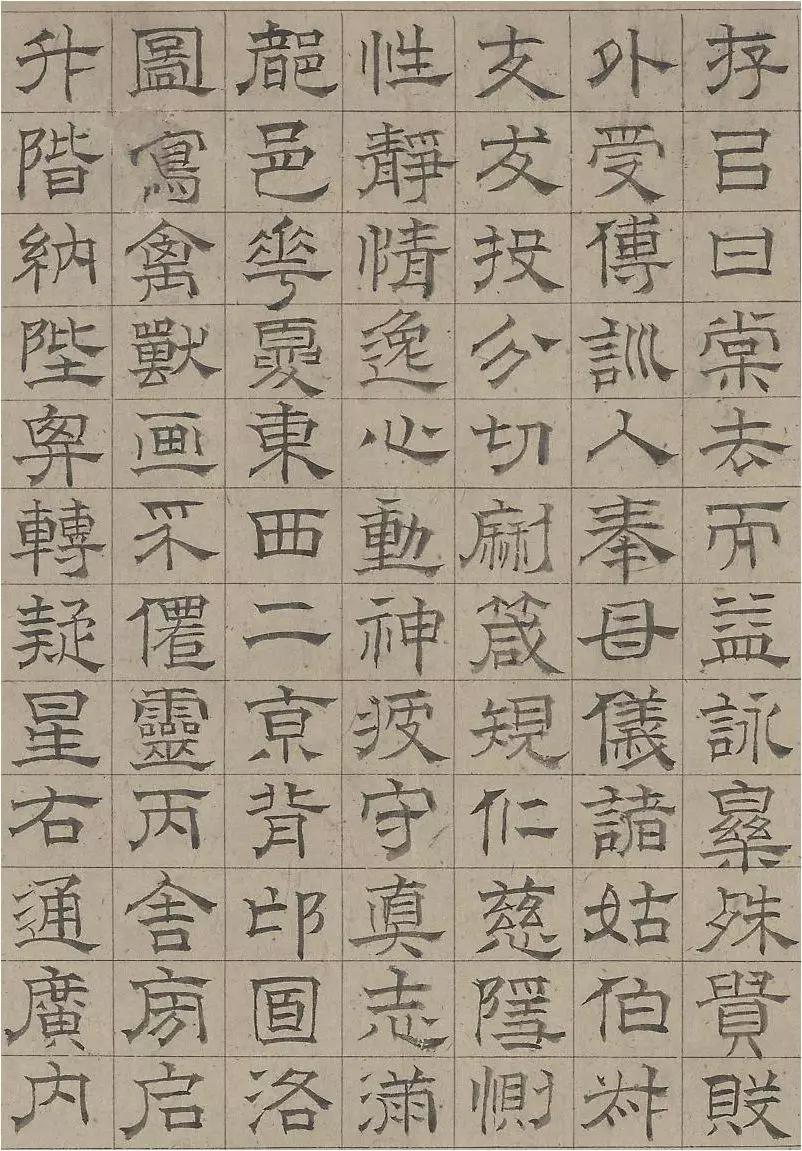 存㠯甘棠去而益詠樂殊貴賤
外受傅訓入奉母儀諸姑伯叔
交友投分切磨箴規仁慈隱惻
性靜情逸心動神疲守真志滿
都邑華夏東西二京背邙面洛
圖寫禽獸画采僊靈丙舍旁启
升階納陛弁轉疑星右通廣内